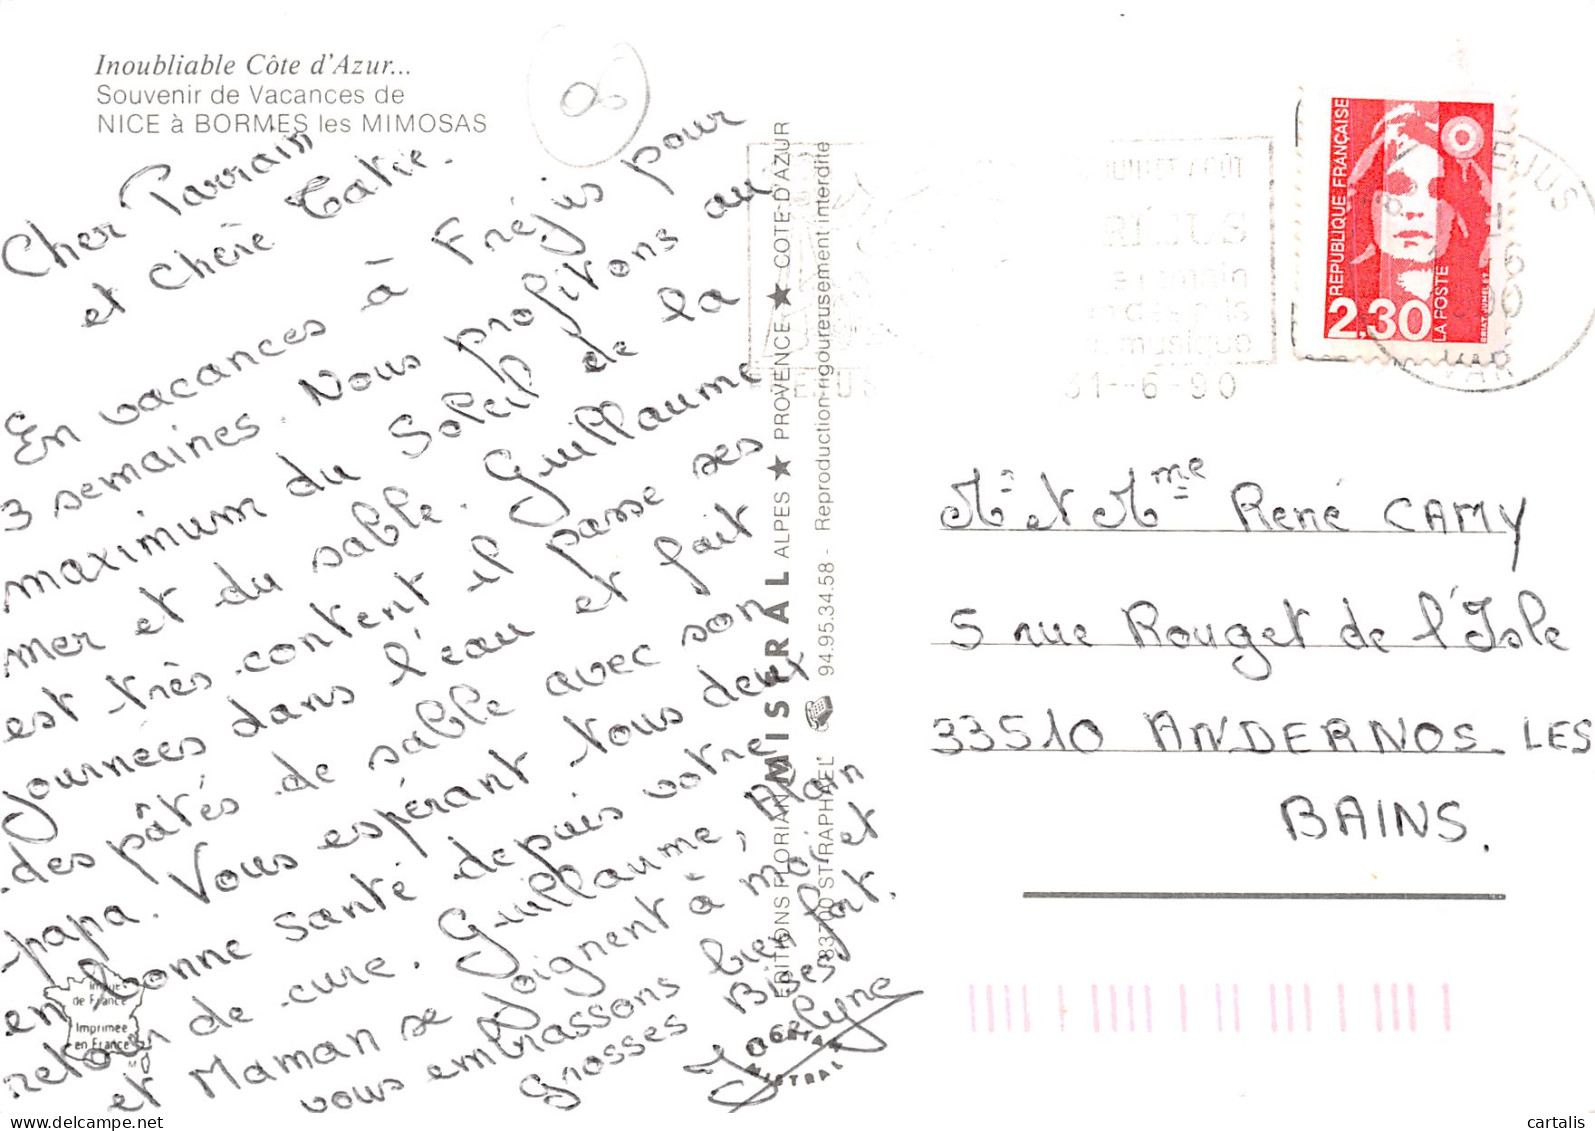 Inoubliable Côte d'Azur...
Souvenir de Vacances de
NICE à BORMES les MIMOSAS
Cher Parrain
et Chère Tatie.
En vacances à Fréjus pour
3 semaines. Nous profitons au
maximum du Soleil de la
mer et du sable. Guillaume
est très content il passe ses
journées dans l'eau et fait
des pâtés de sable avec son
papa. Vous espérant tous deux
en bonne santé depuis votre
retour de cure. Guillaume, Alain
et Maman se joignent à moi et
vous embrassons bien fort.
Grosses Bises
Jocelyne
Images
de France
Imprimée
en France
EDITIONS FLORIAN MISTRAL ALPES ★ PROVENCE ★ COTE D'AZUR
83700 ST RAPHAEL 94.95.34.58 - Reproduction rigoureusement interdite
FLORIAN
MISTRAL
RÉJUS
romain
musique
-6-90
REPUBLIQUE FRANÇAISE
2,30
LA POSTE
EJUS
VAR
Mr et Mme René CAMY
5 rue Rouget de l'Isle
33510 ANDERNOS LES
BAINS.
cartalis